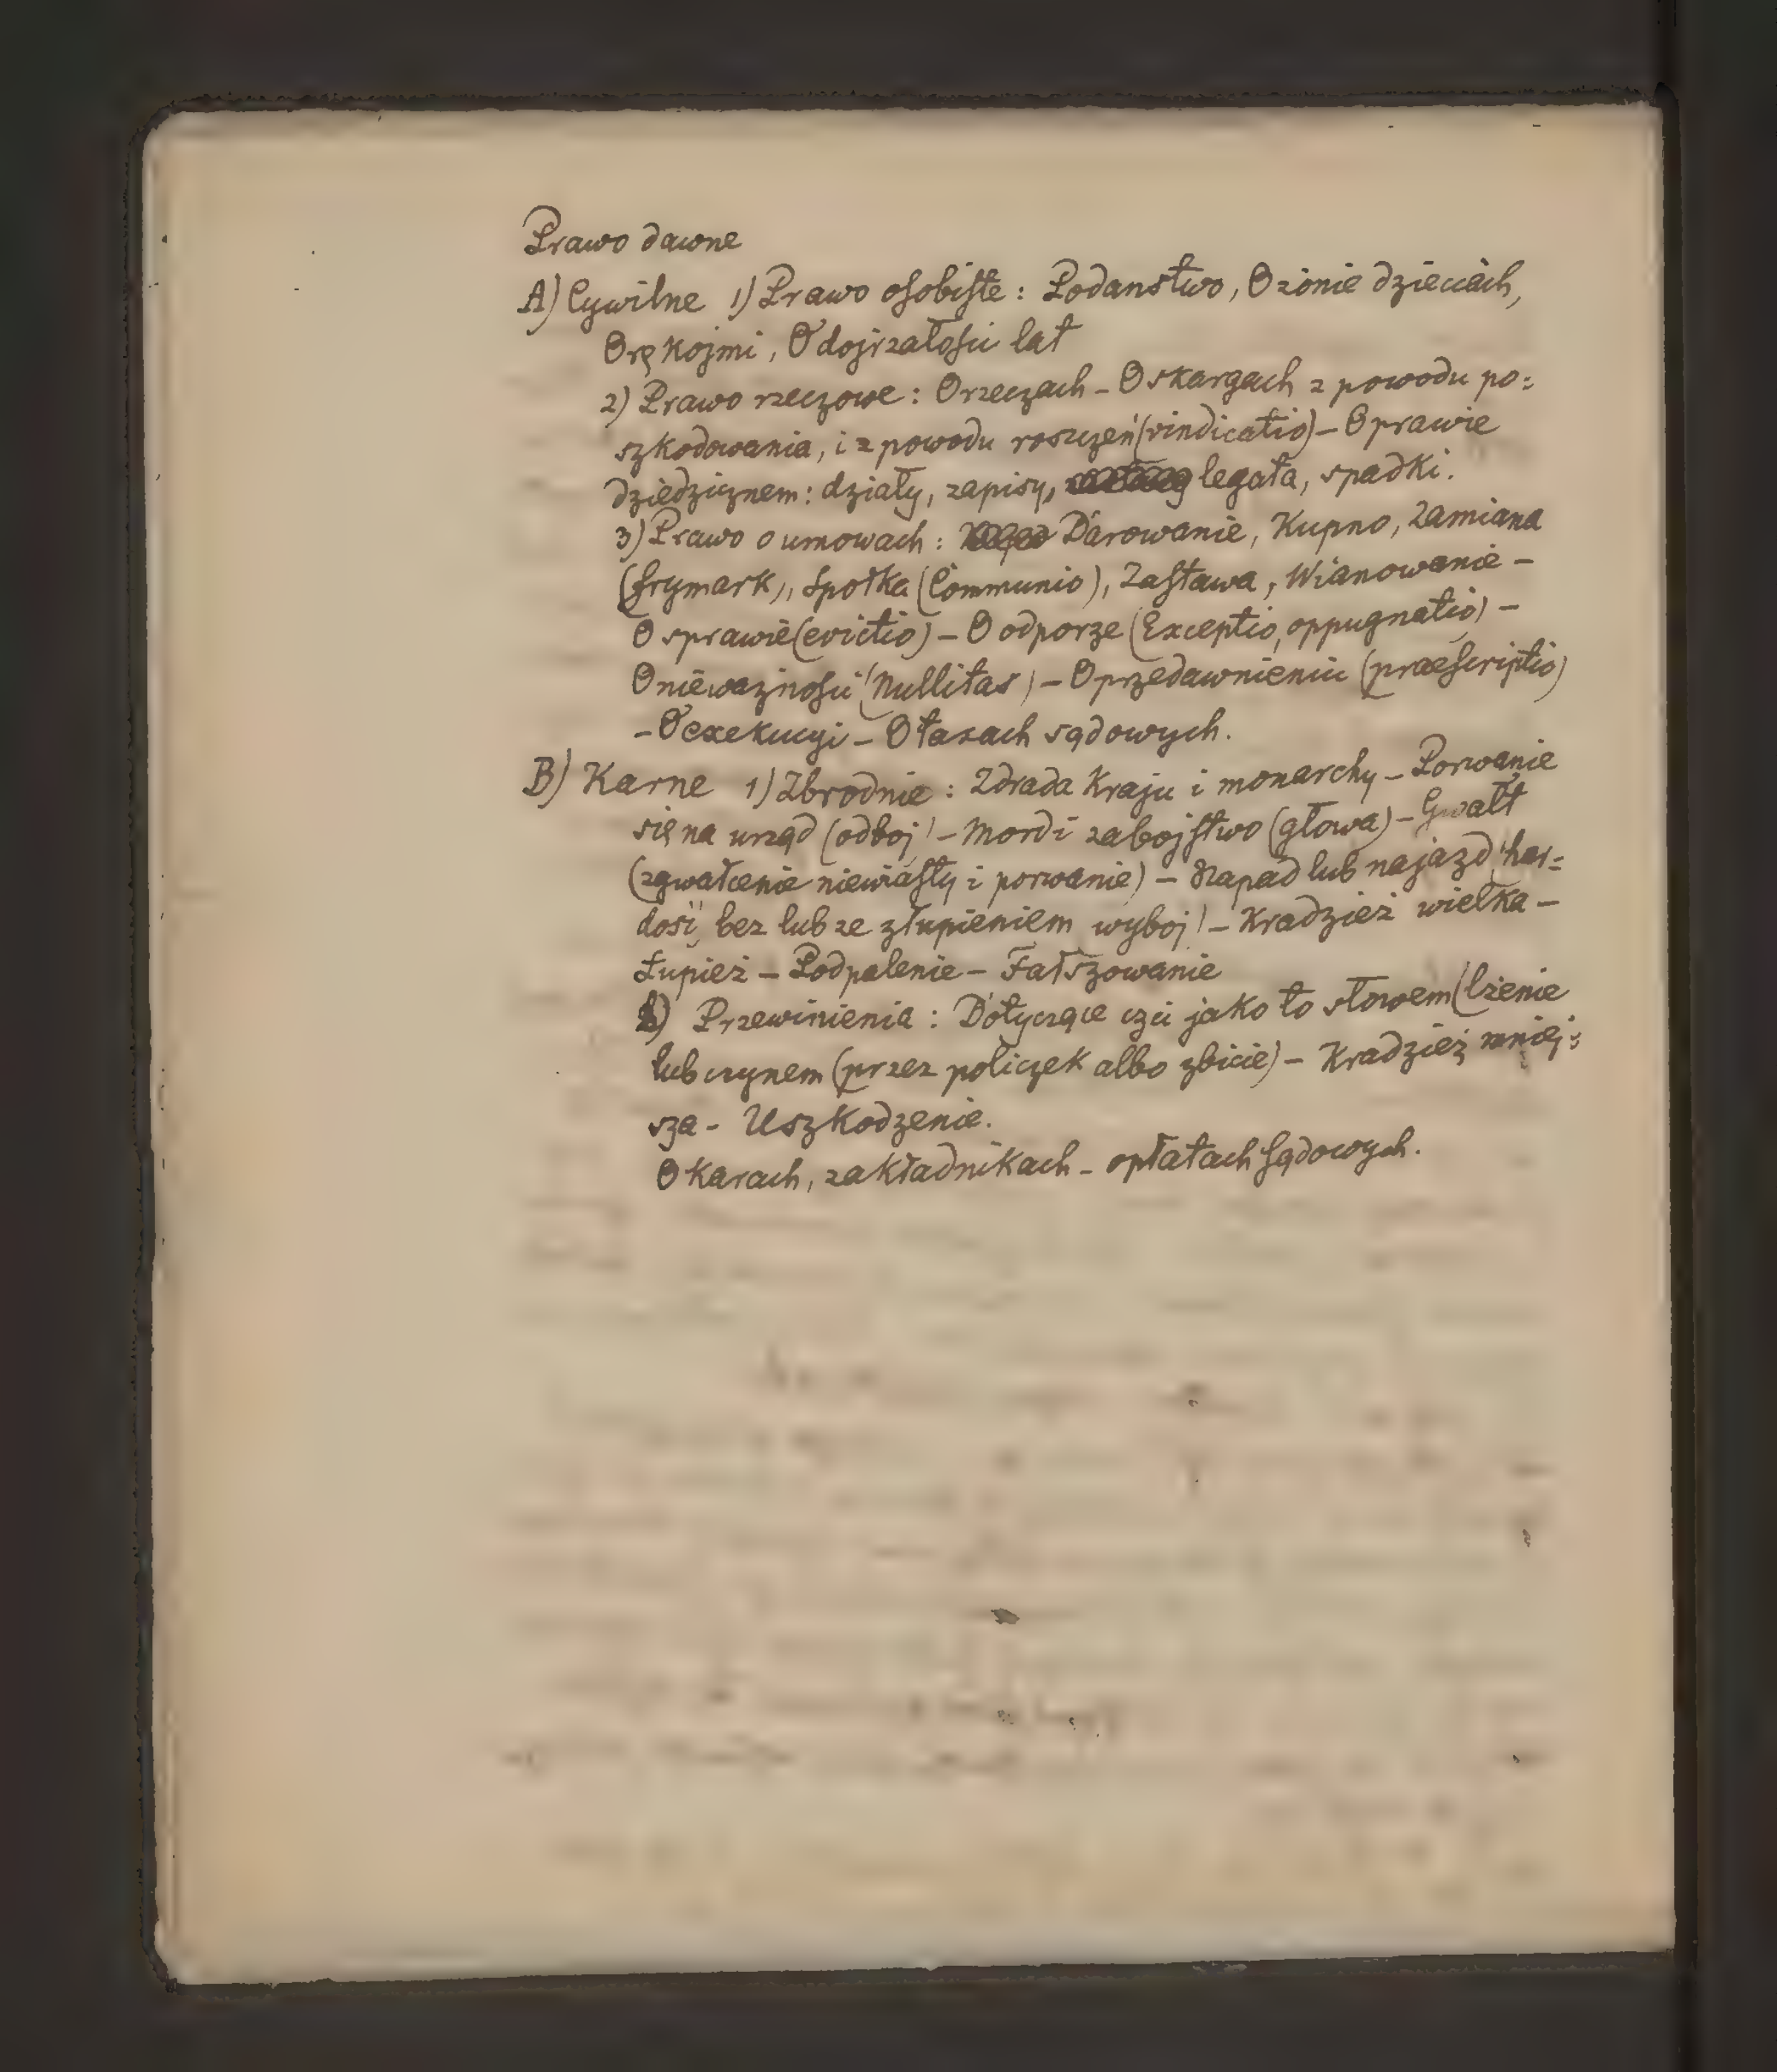 Prawo dawne
A) Cywilne 1) Prawo osobiste: Podaństwo, O żonie dzieciach,
O rękojmi, O dojrzałości lat
2) Prawo rzeczowe: O rzeczach - O skargach z powodu po=
szkodowania, i z powodu roszczeń (vindicatio) - O prawie
dziedzicznem: działy, zapisy, legata, spadki.
3) Prawo o umowach: Darowanie, Kupno, Zamiana
(frymark), Społka (Communio), Zastawa, Wianowanie -
O sprawie (evictio) - O odporze (Exceptio, oppugnatio) -
O nieważności (Nullitas) - O przedawnieniu (praescriptio)
- O exekucyi - O taxach sądowych.
B) Karne 1) Zbrodnie: Zdrada Kraju i monarchy - Porwanie
się na urząd (odboj) - Mord i zabojstwo (głowa) - Gwałt
(zgwałcenie niewiasty i porwanie) - Napad lub najazd (har=
dość, bez lub ze złupieniem wyboj) - Kradzież wielka -
Łupież - Podpalenie - Fałszowanie
2) Przewinienia: Dotyczące czci jako to słowem (lżenie
lub czynem (przez policzek albo zbicie) - Kradzież mniej=
sza - Uszkodzenie.
O karach, zakładnikach - opłatach sądowych.